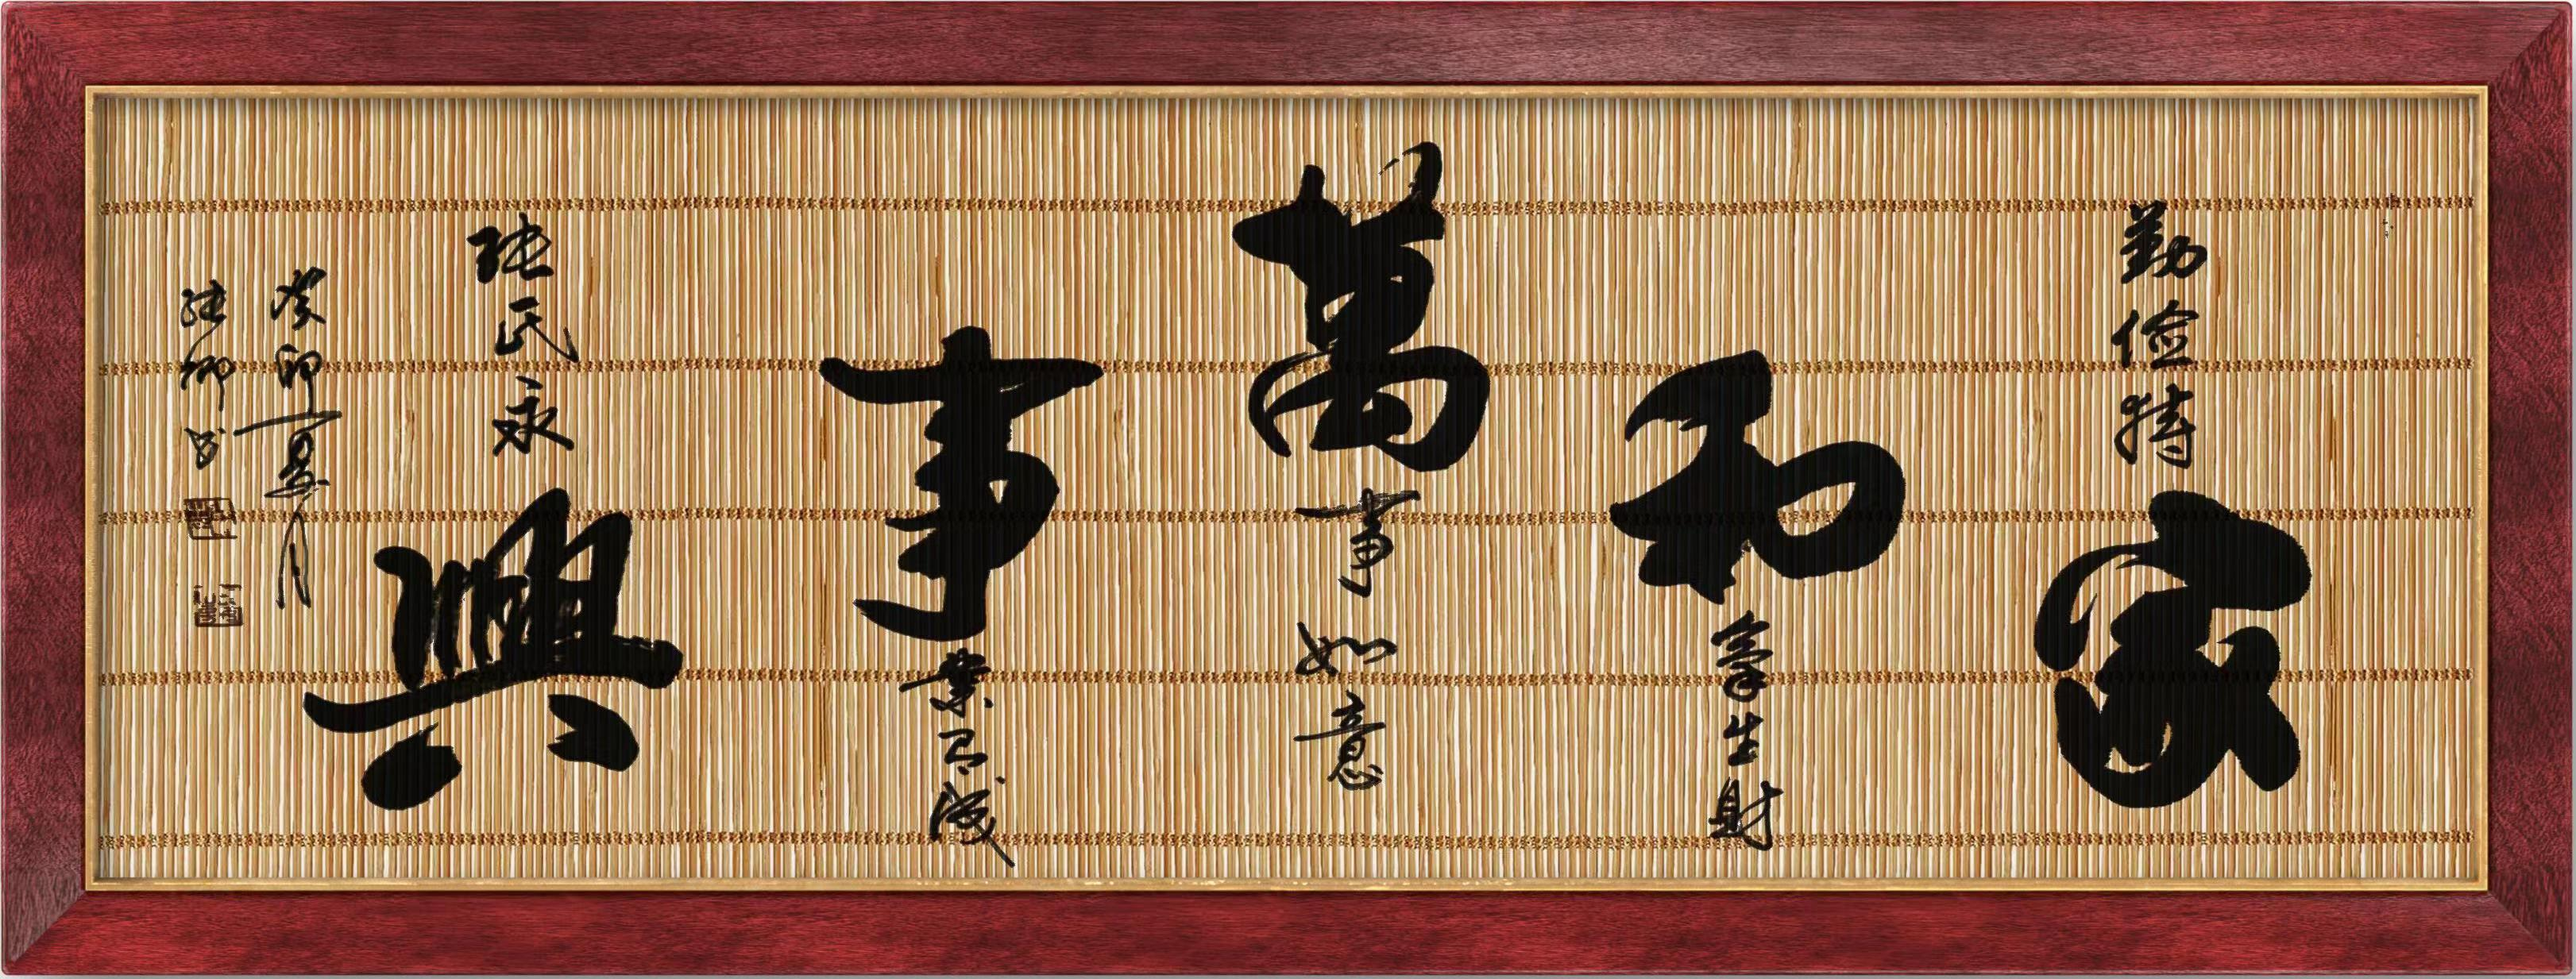 勤俭持家
和气生财
萬事如意
事業有成
张氏永興
癸卯夏月
书